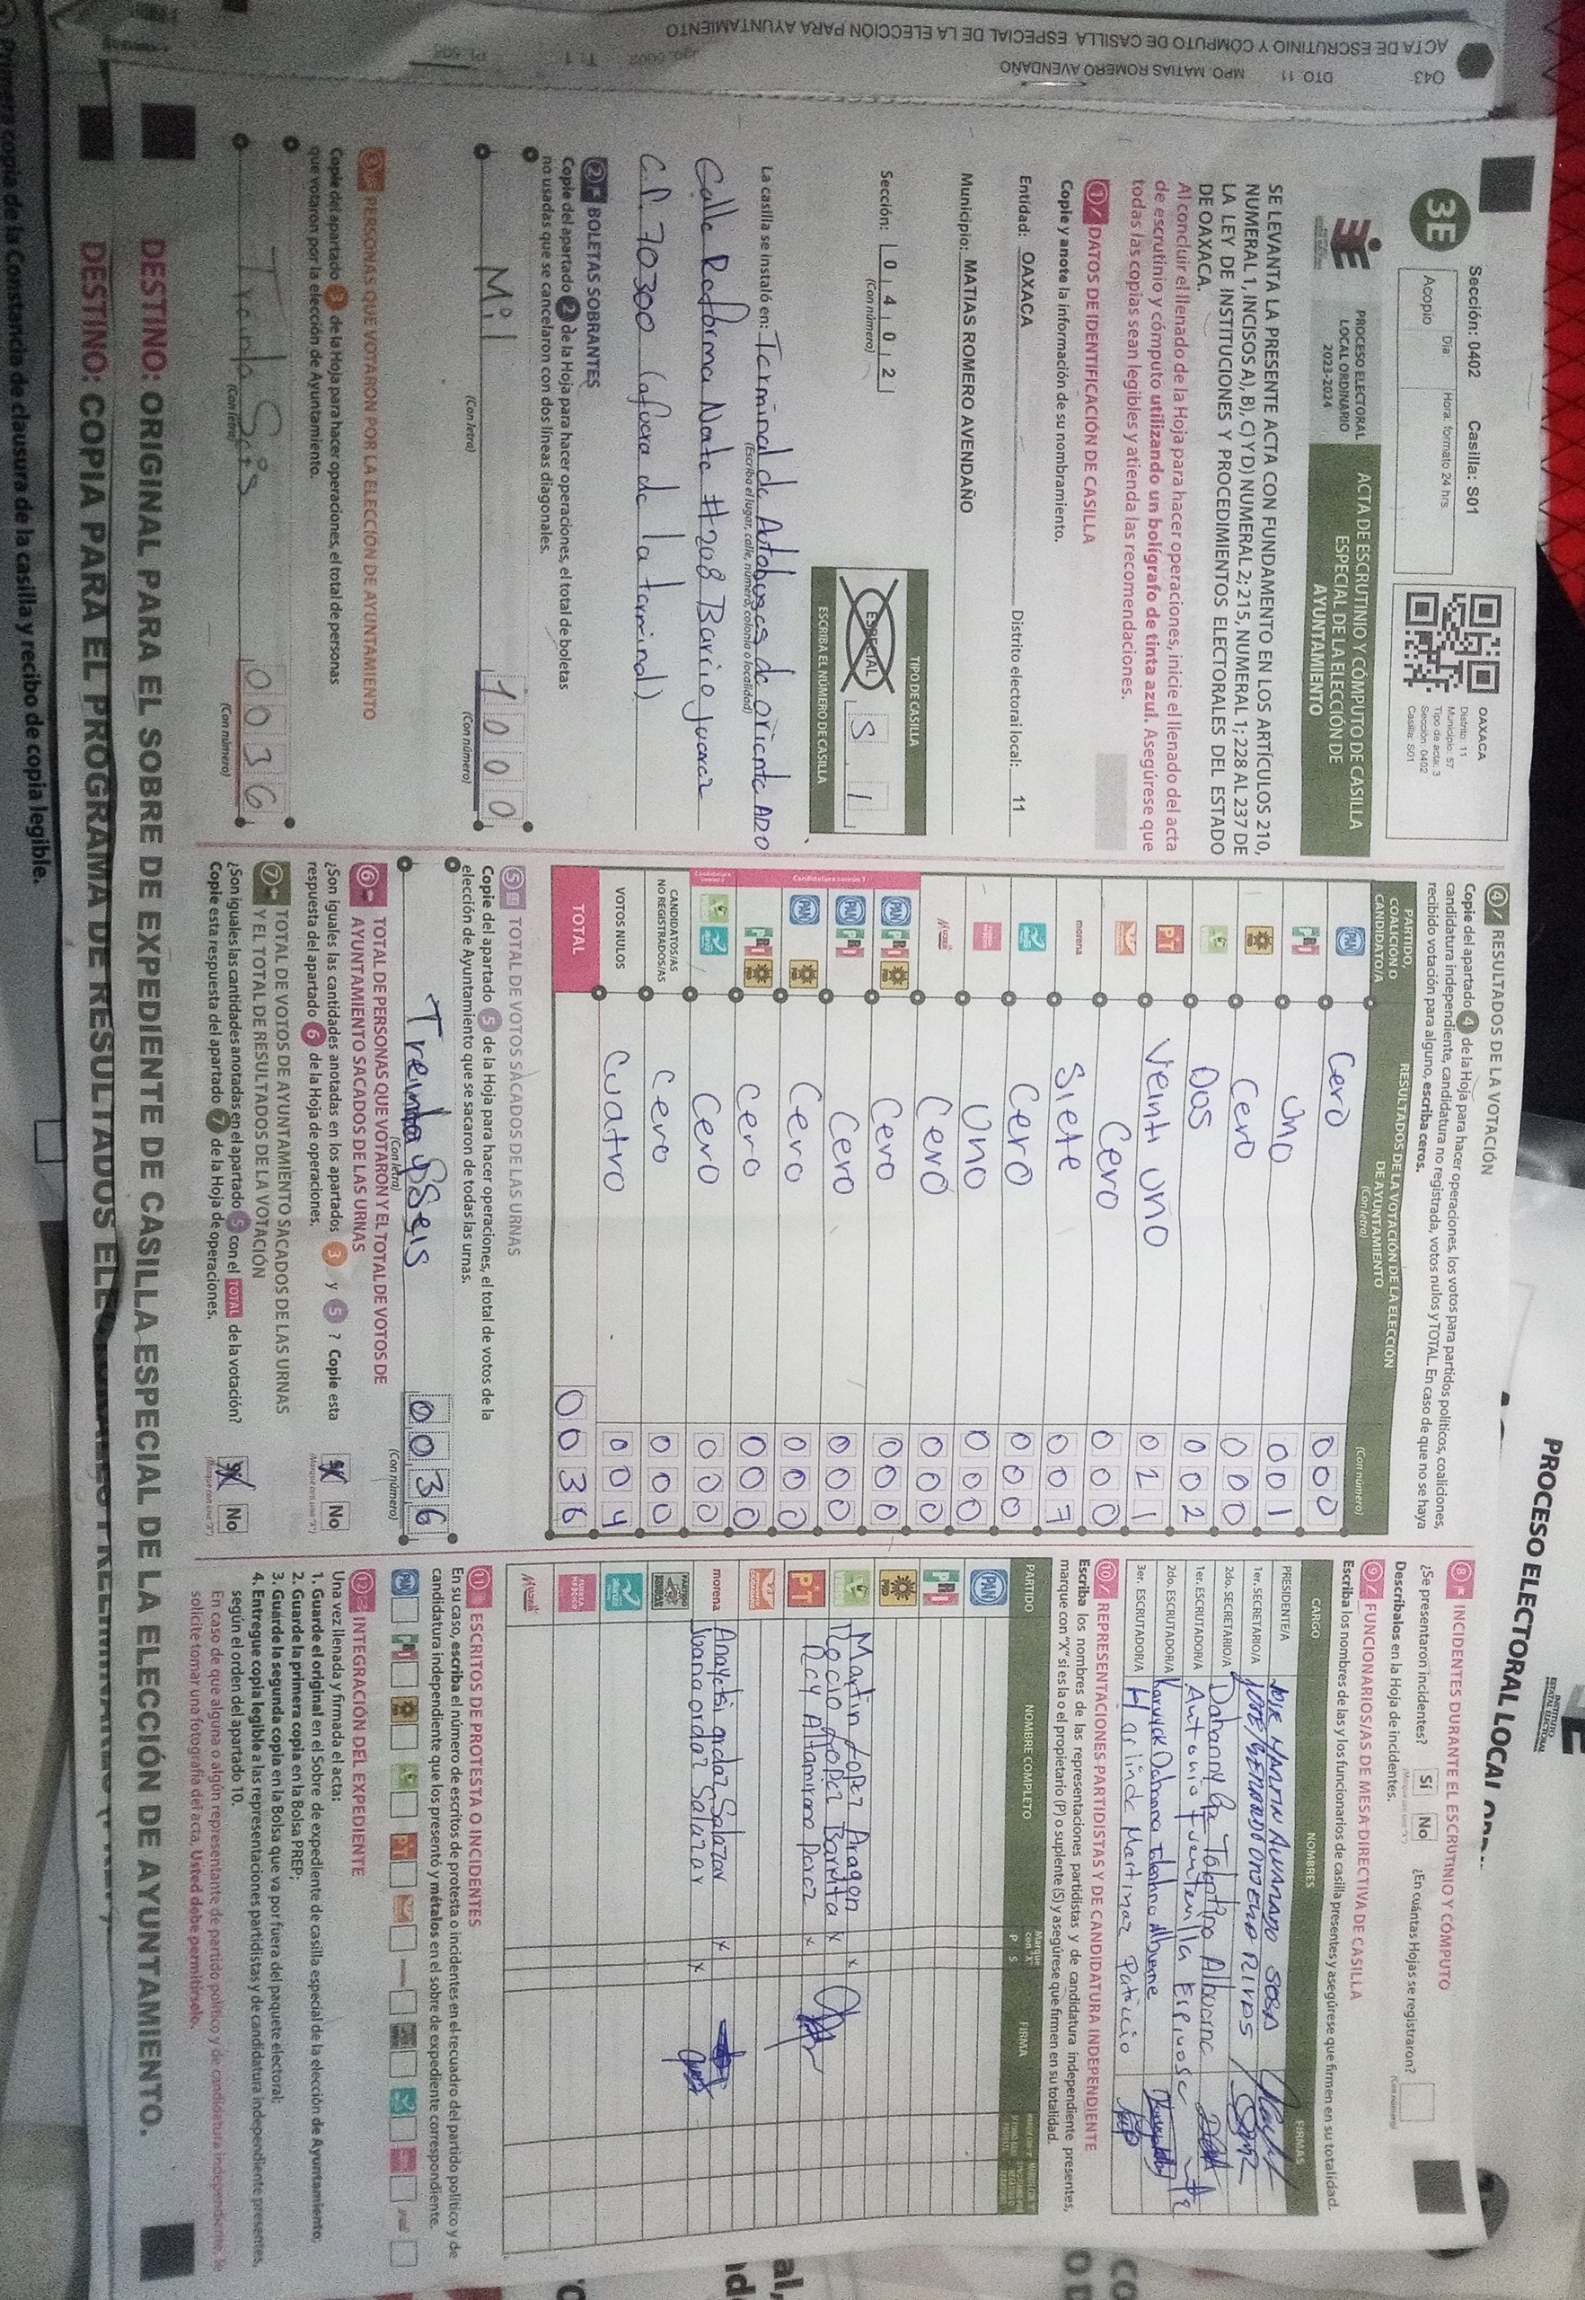 043 DTO. 11 MPO. MATIAS ROMERO AVENDAÑO
ACTA DE ESCRUTINIO Y CÓMPUTO DE CASILLA ESPECIAL DE LA ELECCIÓN PARA AYUNTAMIENTO
PROCESO ELECTORAL LOCAL
Sección: 0402 Casilla: S01
3E
Día Hora: formato 24 hrs.
Acopio
OAXACA
Distrito: 11
Municipio: 57
Tipo de acta: 3
Sección: 0402
Casilla: S01
PROCESO ELECTORAL
LOCAL ORDINARIO
2023-2024
ACTA DE ESCRUTINIO Y CÓMPUTO DE CASILLA
ESPECIAL DE LA ELECCIÓN DE
AYUNTAMIENTO
SE LEVANTA LA PRESENTE ACTA CON FUNDAMENTO EN LOS ARTÍCULOS 210,
NUMERAL 1, INCISOS A), B), C) Y D) NUMERAL 2; 215, NUMERAL 1; 228 AL 237 DE
LA LEY DE INSTITUCIONES Y PROCEDIMIENTOS ELECTORALES DEL ESTADO
DE OAXACA.
Al concluir el llenado de la Hoja para hacer operaciones, inicie el llenado del acta
de escrutinio y cómputo utilizando un bolígrafo de tinta azul. Asegúrese que
todas las copias sean legibles y atienda las recomendaciones.
1 DATOS DE IDENTIFICACIÓN DE CASILLA
Copie y anote la información de su nombramiento.
Entidad: OAXACA Distrito electoral local: 11
Municipio: MATIAS ROMERO AVENDAÑO
Sección: 0 4 0 2
(Con número)
TIPO DE CASILLA
ESPECIAL S 1
ESCRIBA EL NÚMERO DE CASILLA
La casilla se instaló en: Terminal de Autobuses de oriente ADO
(Escriba el lugar, calle, número, colonia o localidad)
Calle Reforma Norte #208 Barrio Juarez
C.P. 70300 (afuera de la terminal)
2 BOLETAS SOBRANTES
Copie del apartado 2 de la Hoja para hacer operaciones, el total de boletas
no usadas que se cancelaron con dos líneas diagonales.
Mil 1000
(Con letra) (Con número)
3 PERSONAS QUE VOTARON POR LA ELECCIÓN DE AYUNTAMIENTO
Copie del apartado 3 de la Hoja para hacer operaciones, el total de personas
que votaron por la elección de Ayuntamiento.
Treinta Seis 0036
(Con letra) (Con número)
4 RESULTADOS DE LA VOTACIÓN
Copie del apartado 4 de la Hoja para hacer operaciones, los votos para partidos políticos, coaliciones,
candidatura independiente, candidatura no registrada, votos nulos y TOTAL. En caso de que no se haya
recibido votación para alguno, escriba ceros.
PARTIDO, COALICIÓN O CANDIDATO/A
RESULTADOS DE LA VOTACIÓN DE LA ELECCIÓN DE AYUNTAMIENTO
(Con letra) (Con número)
PAN Cero 000
PRI Uno 001
PRD Cero 000
Dos 002
PT Veinti Uno 021
Cero 000
morena Siete 007
Cero 000
Uno 000
Cero 000
Candidatura común 1
PAN PRI PRD Cero 000
PAN PRI Cero 000
PAN PRD Cero 000
PRI PRD Cero 000
Cero 000
CANDIDATOS/AS NO REGISTRADOS/AS Cero 000
VOTOS NULOS Cuatro 004
TOTAL 0036
5 TOTAL DE VOTOS SACADOS DE LAS URNAS
Copie del apartado 5 de la Hoja para hacer operaciones, el total de votos de la
elección de Ayuntamiento que se sacaron de todas las urnas.
Treinta y Seis 0036
(Con letra) (Con número)
6 TOTAL DE PERSONAS QUE VOTARON Y EL TOTAL DE VOTOS DE
AYUNTAMIENTO SACADOS DE LAS URNAS
¿Son iguales las cantidades anotadas en los apartados 3 y 5? Copie esta
respuesta del apartado 6 de la Hoja de operaciones. No
7 TOTAL DE VOTOS DE AYUNTAMIENTO SACADOS DE LAS URNAS
Y EL TOTAL DE RESULTADOS DE LA VOTACIÓN
¿Son iguales las cantidades anotadas en el apartado 5 con el TOTAL de la votación?
Copie esta respuesta del apartado 7 de la Hoja de operaciones. No
8 INCIDENTES DURANTE EL ESCRUTINIO Y CÓMPUTO
¿Se presentaron incidentes? Sí No ¿En cuántas Hojas se registraron?
Descríbalos en la Hoja de incidentes.
9 FUNCIONARIOS/AS DE MESA DIRECTIVA DE CASILLA
Escriba los nombres de las y los funcionarios de casilla presentes y asegúrese que firmen en su totalidad.
CARGO NOMBRES FIRMAS
PRESIDENTE/A JOSE MARTIN ALVARADO SOSA
1er. SECRETARIO/A
2do. SECRETARIO/A
1er. ESCRUTADOR/A Antonio Fuentevilla Espinosa
2do. ESCRUTADOR/A
3er. ESCRUTADOR/A Martinez Patricio
10 REPRESENTACIONES PARTIDISTAS Y DE CANDIDATURA INDEPENDIENTE
Escriba los nombres de las representaciones partidistas y de candidatura independiente presentes,
marque con "X" si es la o el propietario (P) o suplente (S) y asegúrese que firmen en su totalidad.
PARTIDO NOMBRE COMPLETO P S FIRMA
PAN
PRI
PRD
Martin Lopez Aragon x
Rocio Lopez Barrita x
PT Rey Altamirano Perez x
morena Anayetsi ordaz Salazar x
Ivana ordaz Salazar x
11 ESCRITOS DE PROTESTA O INCIDENTES
En su caso, escriba el número de escritos de protesta o incidentes en el recuadro del partido político y de
candidatura independiente que los presentó y métalos en el sobre de expediente correspondiente.
12 INTEGRACIÓN DEL EXPEDIENTE
Una vez llenada y firmada el acta:
1. Guarde el original en el Sobre de expediente de casilla especial de la elección de Ayuntamiento;
2. Guarde la primera copia en la Bolsa PREP;
3. Guarde la segunda copia en la Bolsa que va por fuera del paquete electoral;
4. Entregue copia legible a las representaciones partidistas y de candidatura independiente presentes,
según el orden del apartado 10.
En caso de que alguna o algún representante de partido político y de candidatura independiente, le
solicite tomar una fotografía del acta. Usted debe permitírselo.
DESTINO: ORIGINAL PARA EL SOBRE DE EXPEDIENTE DE CASILLA ESPECIAL DE LA ELECCIÓN DE AYUNTAMIENTO.
DESTINO: COPIA PARA EL PROGRAMA DE RESULTADOS
Primera copia de la Constancia de clausura de la casilla y recibo de copia legible.